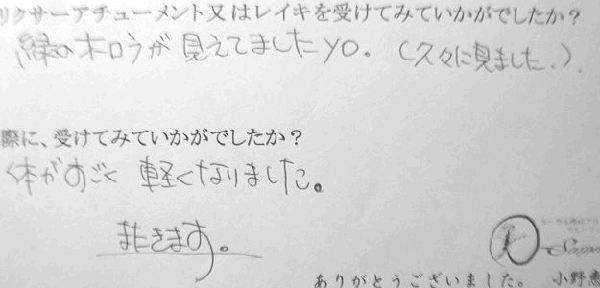 リクサーアチューメント又はレイキを受けてみていかがでしたか？
緑のホロうが見えてましたyo。（久々に見ました.）
際に、受けてみていかがでしたか？
体がすごく軽くなりました。
またきます。
ありがとうございました。 小野恵